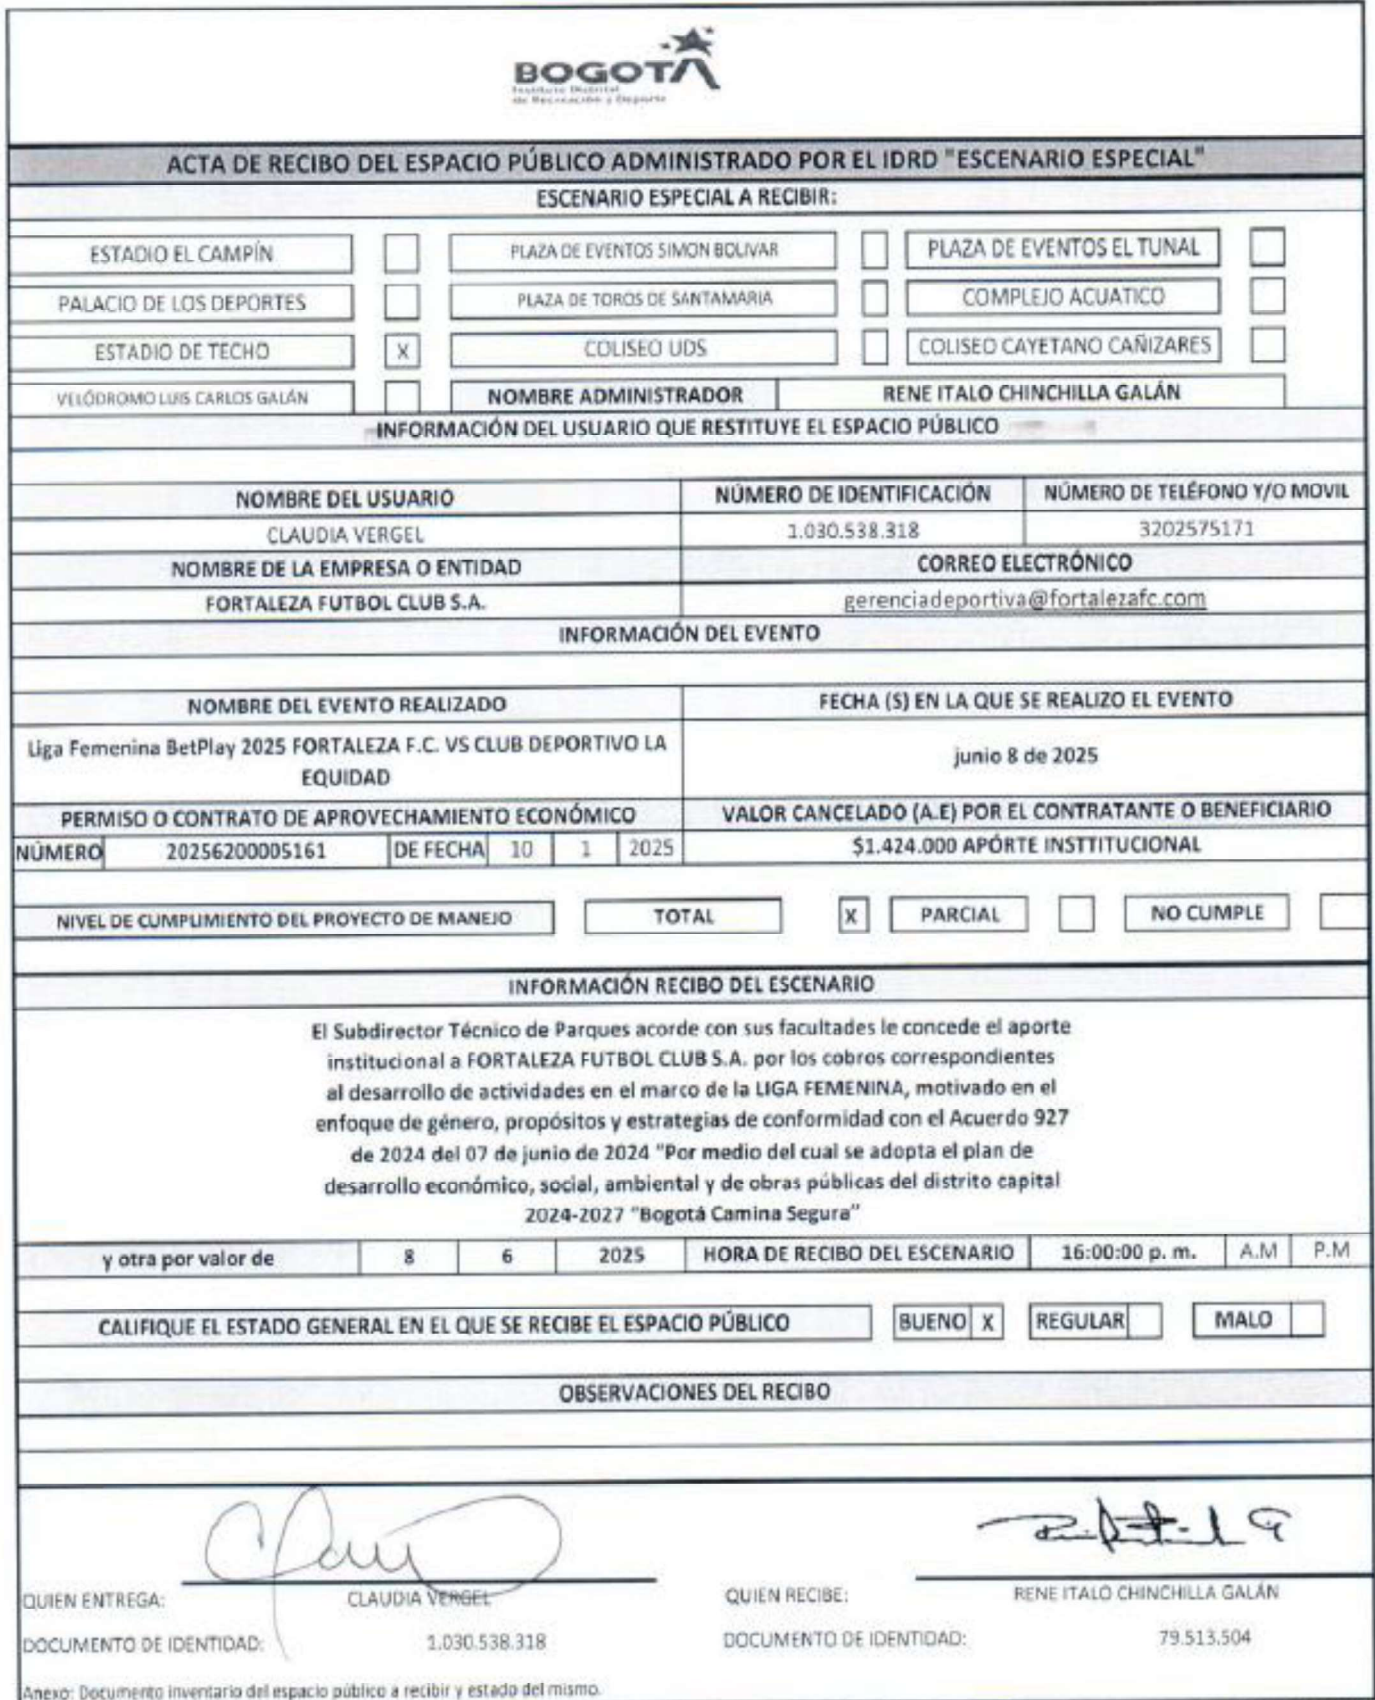 BOGOTÁ
Instituto Distrital
de Recreación y Deporte
ACTA DE RECIBO DEL ESPACIO PÚBLICO ADMINISTRADO POR EL IDRD "ESCENARIO ESPECIAL"
ESCENARIO ESPECIAL A RECIBIR:
ESTADIO EL CAMPÍN PLAZA DE EVENTOS SIMON BOLIVAR PLAZA DE EVENTOS EL TUNAL
PALACIO DE LOS DEPORTES PLAZA DE TOROS DE SANTAMARIA COMPLEJO ACUATICO
ESTADIO DE TECHO X COLISEO UDS COLISEO CAYETANO CAÑIZARES
VELÓDROMO LUIS CARLOS GALÁN NOMBRE ADMINISTRADOR RENE ITALO CHINCHILLA GALÁN
INFORMACIÓN DEL USUARIO QUE RESTITUYE EL ESPACIO PÚBLICO
NOMBRE DEL USUARIO NÚMERO DE IDENTIFICACIÓN NÚMERO DE TELÉFONO Y/O MOVIL
CLAUDIA VERGEL 1.030.538.318 3202575171
NOMBRE DE LA EMPRESA O ENTIDAD CORREO ELECTRÓNICO
FORTALEZA FUTBOL CLUB S.A. gerenciadeportiva@fortalezafc.com
INFORMACIÓN DEL EVENTO
NOMBRE DEL EVENTO REALIZADO FECHA (S) EN LA QUE SE REALIZO EL EVENTO
Liga Femenina BetPlay 2025 FORTALEZA F.C. VS CLUB DEPORTIVO LA
EQUIDAD
junio 8 de 2025
PERMISO O CONTRATO DE APROVECHAMIENTO ECONÓMICO VALOR CANCELADO (A.E) POR EL CONTRATANTE O BENEFICIARIO
NÚMERO 20256200005161 DE FECHA 10 1 2025 $1.424.000 APÓRTE INSTTITUCIONAL
NIVEL DE CUMPLIMIENTO DEL PROYECTO DE MANEJO TOTAL X PARCIAL NO CUMPLE
INFORMACIÓN RECIBO DEL ESCENARIO
El Subdirector Técnico de Parques acorde con sus facultades le concede el aporte
institucional a FORTALEZA FUTBOL CLUB S.A. por los cobros correspondientes
al desarrollo de actividades en el marco de la LIGA FEMENINA, motivado en el
enfoque de género, propósitos y estrategias de conformidad con el Acuerdo 927
de 2024 del 07 de junio de 2024 "Por medio del cual se adopta el plan de
desarrollo económico, social, ambiental y de obras públicas del distrito capital
2024-2027 "Bogotá Camina Segura"
y otra por valor de 8 6 2025 HORA DE RECIBO DEL ESCENARIO 16:00:00 p. m. A.M P.M
CALIFIQUE EL ESTADO GENERAL EN EL QUE SE RECIBE EL ESPACIO PÚBLICO BUENO X REGULAR MALO
OBSERVACIONES DEL RECIBO
QUIEN ENTREGA: CLAUDIA VERGEL QUIEN RECIBE: RENE ITALO CHINCHILLA GALÁN
DOCUMENTO DE IDENTIDAD: 1.030.538.318 DOCUMENTO DE IDENTIDAD: 79.513.504
Anexo: Documento inventario del espacio público a recibir y estado del mismo.